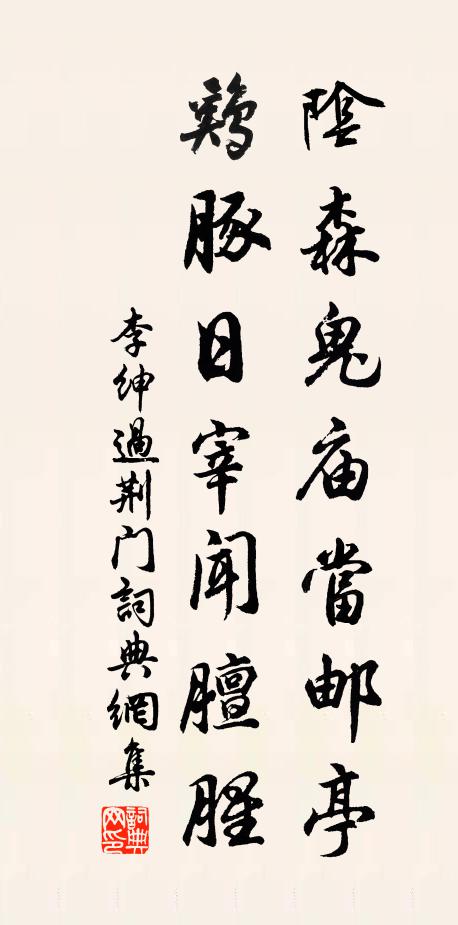 陰森鬼庙當邮亭
鷄豚日宰闻膻腥
李绅過荆门詞典網集
詞典网印